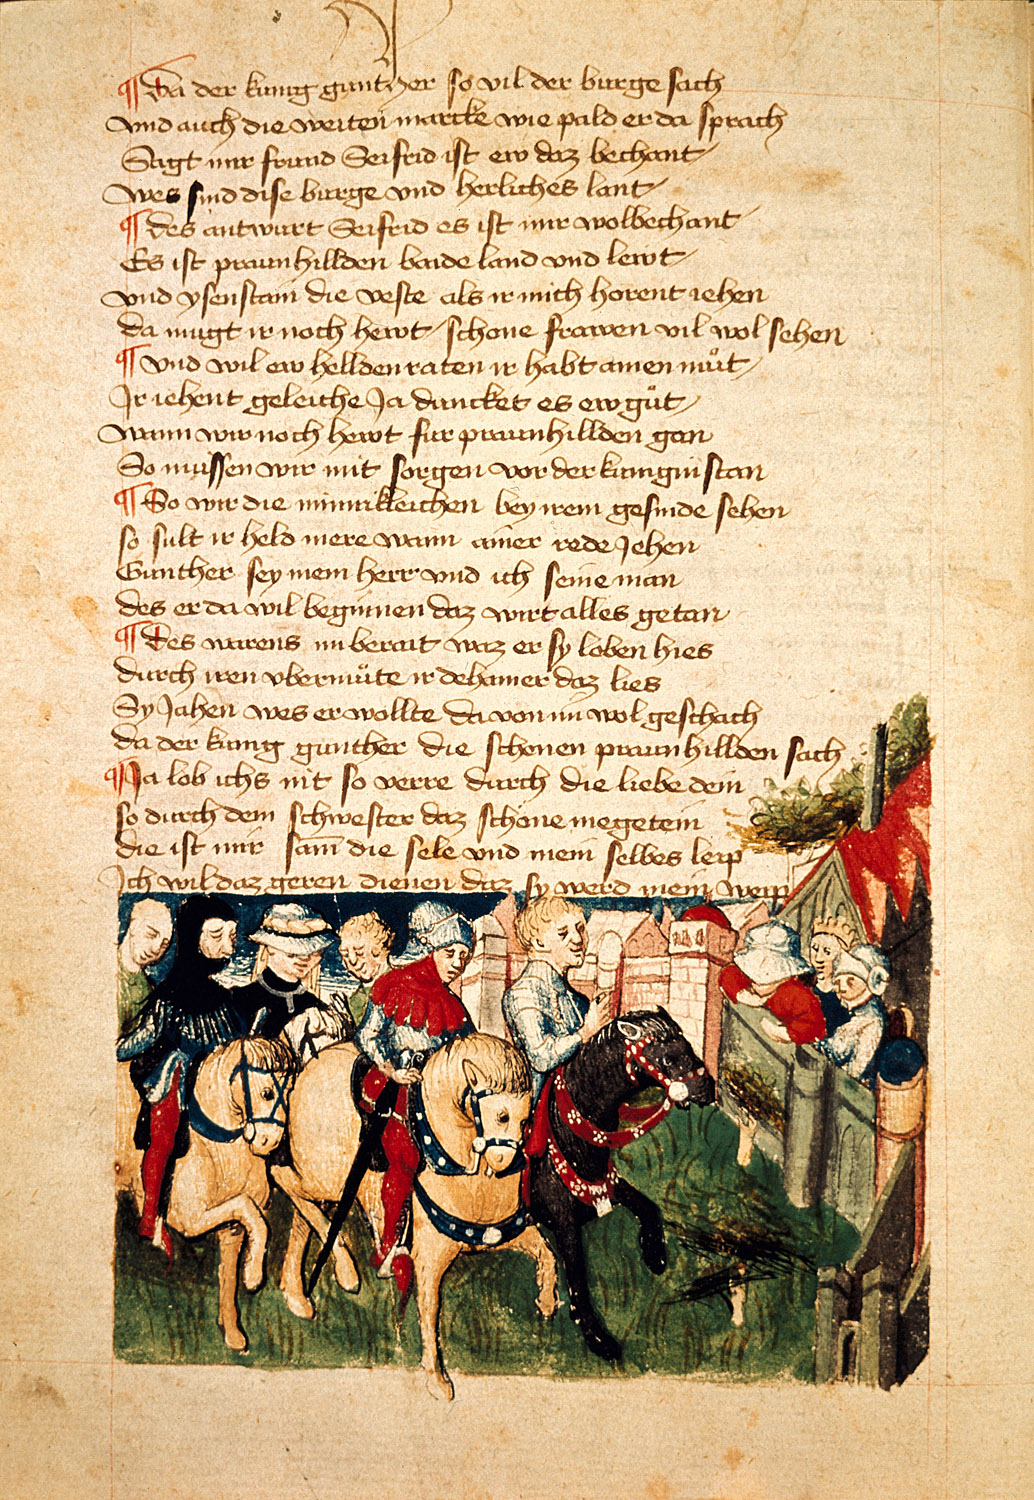 ¶ Da der kunig guntzer so vil der burge sach
vnd auch die weiten marcke wie pald er da sprach
Sagt mir frund Seifrid ist ew daz bechant
wes sind dise burge vnd herliches lant
¶ des antwurt Seifrid es ist mir wolbechant
Es ist praunhillden baide land vnd lewt
vnd ysenstain die veste als ir mich horent iehen
da mugt ir noch hewt schone frawen vil wol sehen
¶ vnd wil ew hellden raten ir habt ainen muͦt
Ir iehent geleiche Ja duncket es ew guͦt
wann wir noch hewt fur praunhillden gan
So mussen wir mit sorgen vor der kunigin stan
¶ So wir die minnikleichen bey irem gesinde sehen
so sult ir held mere wann ainer rede Jehen
Gunther sey mein herr vnd ich seine man
des er da wil beginnen daz wirt alles getan
¶ Des warens im berait waz er sy loben hies
durch iren vbermuͤte ir dehainer daz lies
Sy Jahen wes er wollte da von im wol geschach
da der kunig gunther die schonen praunhillden sach
¶ Ja lob ichs nit so verre durch die liebe dein
so durch dein schwester daz schone megetein
die ist mir sam̄ die sele vnd mein selbes leip
Ich wil daz geren dienen daz sy werd mein weip